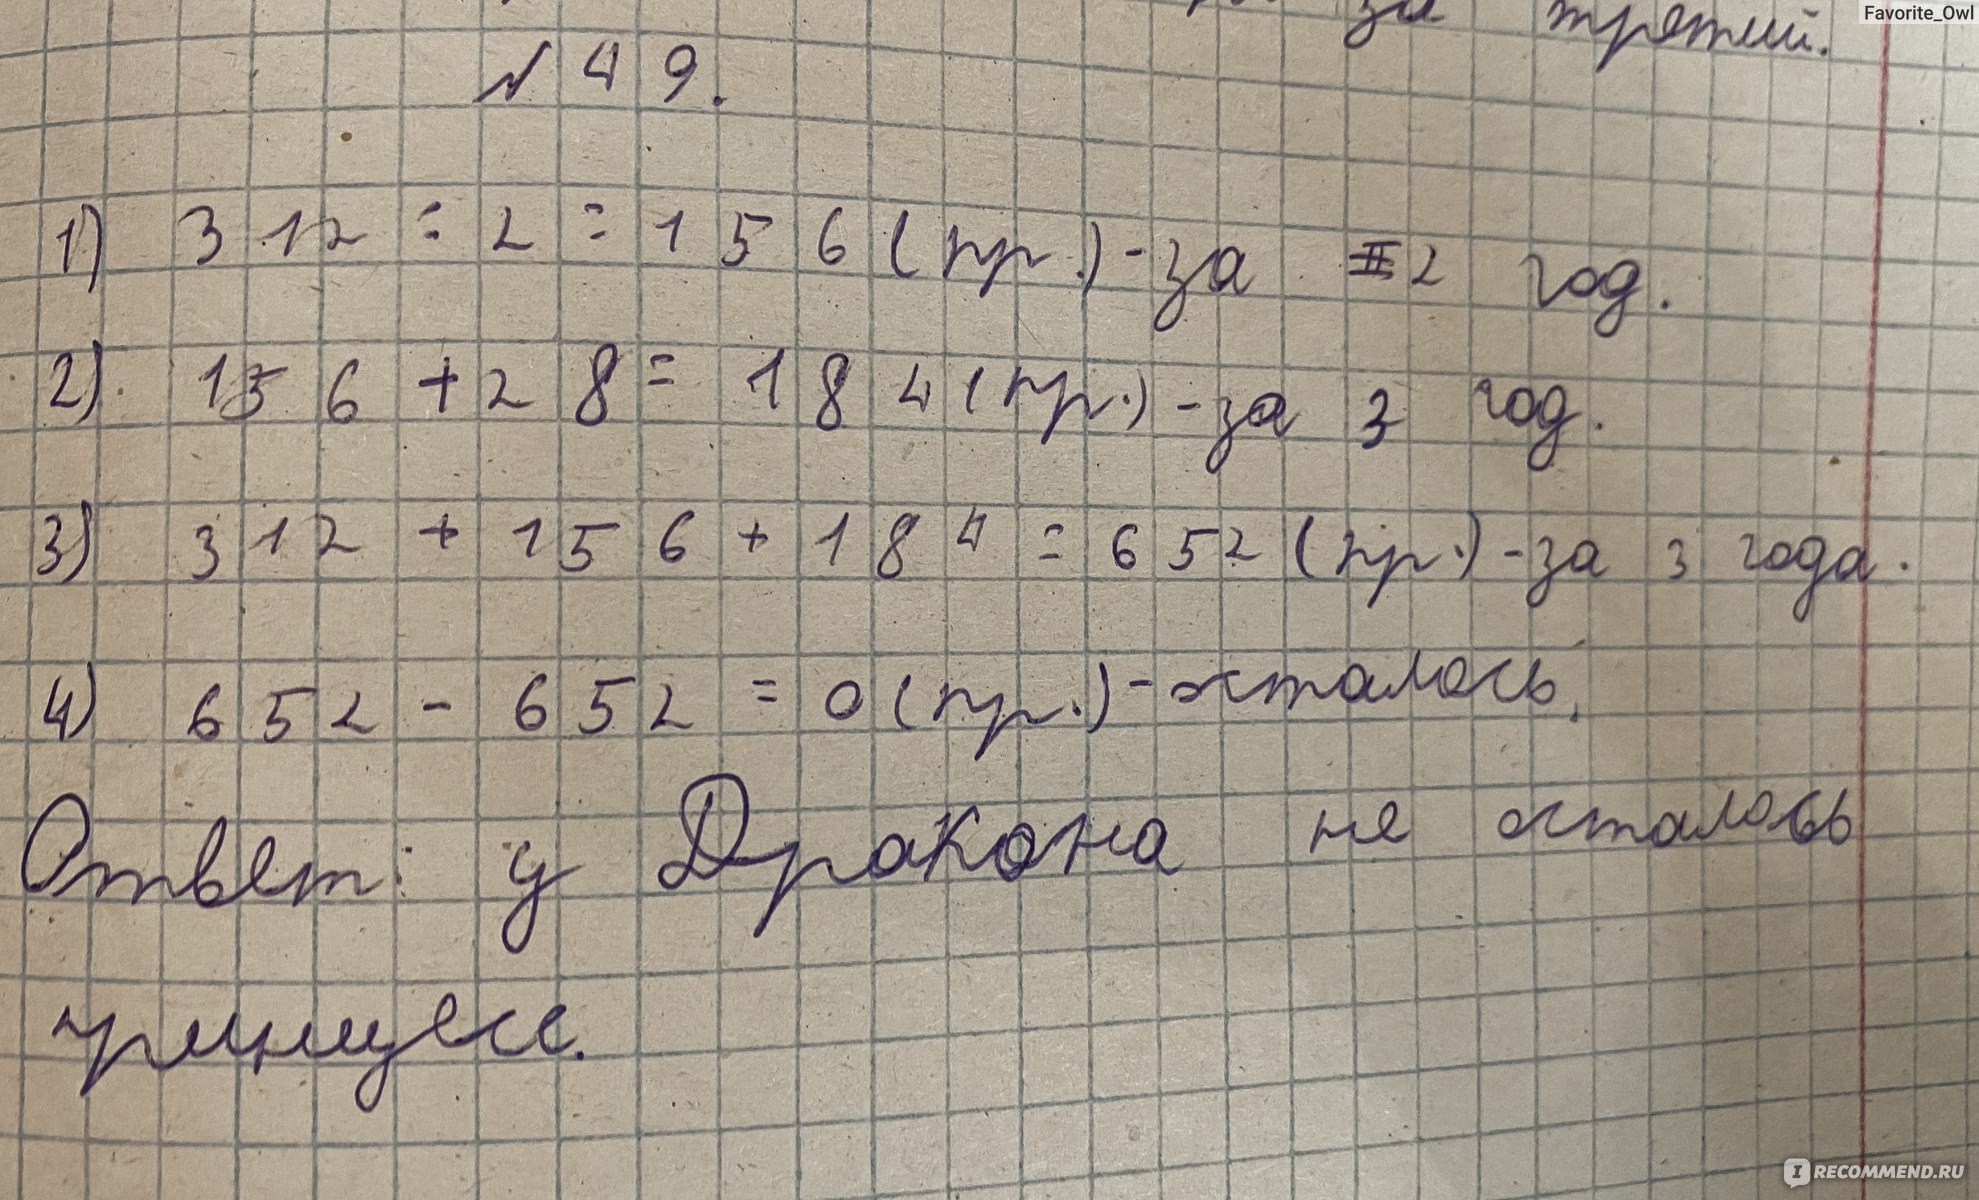 за третий.
Favorite_Owl
№ 49.
1) 312 : 2 = 156 (пр.) - за 2 год.
2) 156 + 28 = 184 (пр.) - за 3 год.
3) 312 + 156 + 184 = 652 (пр.) - за 3 года.
4) 652 - 652 = 0 (пр.) - осталось.
Ответ: у Дракона не осталось
принцесс.
IRECOMMEND.RU